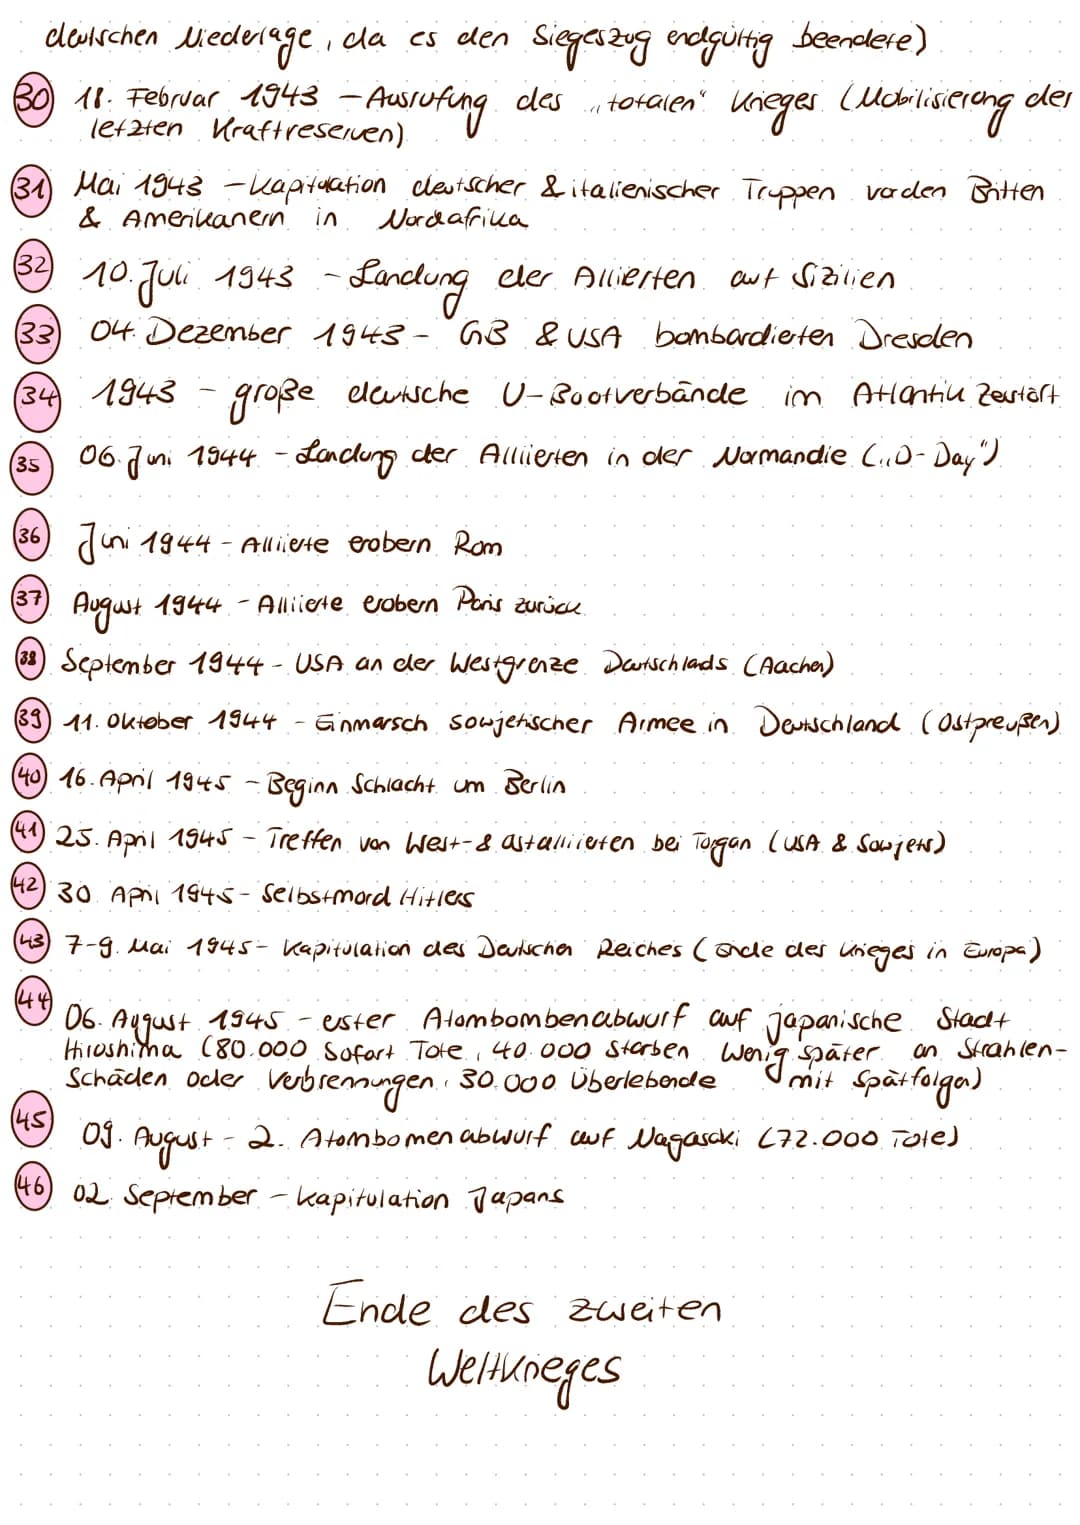 deutschen Niederlage, da es den Siegeszug endgültig beendete)
30 18. Februar 1943 - Ausrufung des „totalen" Krieges (Mobilisierung der
letzten Kraftreserven)
31 Mai 1943 - Kapitulation deutscher & italienischer Truppen vor den Britten
& Amerikanern in Nordafrika
32 10. Juli 1943 - Landung der Allierten auf Sizilien
33 04. Dezember 1943 - GB & USA bombardierten Dresden
34 1943 - große deutsche U-Bootverbände im Atlantik zerstört
35 06. Juni 1944 - Landung der Alliierten in der Normandie („D-Day")
36 Juni 1944 - Alliierte erobern Rom
37 August 1944 - Alliierte erobern Paris zurück
38 September 1944 - USA an der Westgrenze Deutschlads (Aachen)
39 11. Oktober 1944 - Einmarsch sowjetischer Armee in Deutschland (Ostpreußen)
40 16. April 1945 - Beginn Schlacht um Berlin
41 25. April 1945 - Treffen von West- & Ostalliierten bei Torgau (USA & Sowjets)
42 30. April 1945 - Selbstmord Hitlers
43 7-9. Mai 1945 - Kapitulation des Deutschen Reiches (Ende des Krieges in Europa)
44 06. August 1945 - erster Atombombenabwurf auf japanische Stadt
Hiroshima (80.000 Sofort Tote, 40.000 starben wenig später an Strahlen-
schäden oder Verbrennungen, 30.000 Überlebende mit Spätfolgen)
45 09. August - 2. Atombomenabwurf auf Nagasaki (72.000 Tote)
46 02. September - Kapitulation Japans
Ende des zweiten
Weltkrieges